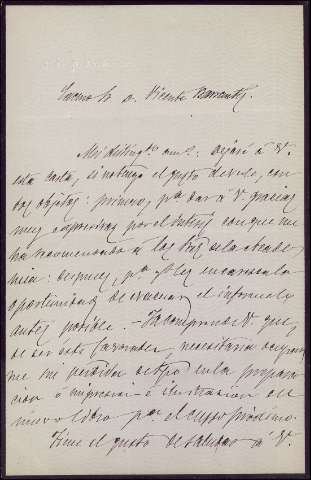 Excmo Sr D. Vicente Barrantes.
Mi disting.do am.o: Dejaré á V.
esta carta, si no tengo el gusto de verle, con
dos objetos: primero, p.a dar á V. gracias
muy expresivas por el interés con que me
ha recomendado á los Sres de la Acade
mia: despues, p.a
oportunidad de evacuar el informe lo
antes posible. — Ya comprende V. que,
de ser éste favorable, necesitaria ocupar
me sin perdida de tpo en la prepara
cion é impresion é ilustracion del
nuevo libro par el curso próximo.
Tiene el gusto de saludar á V.